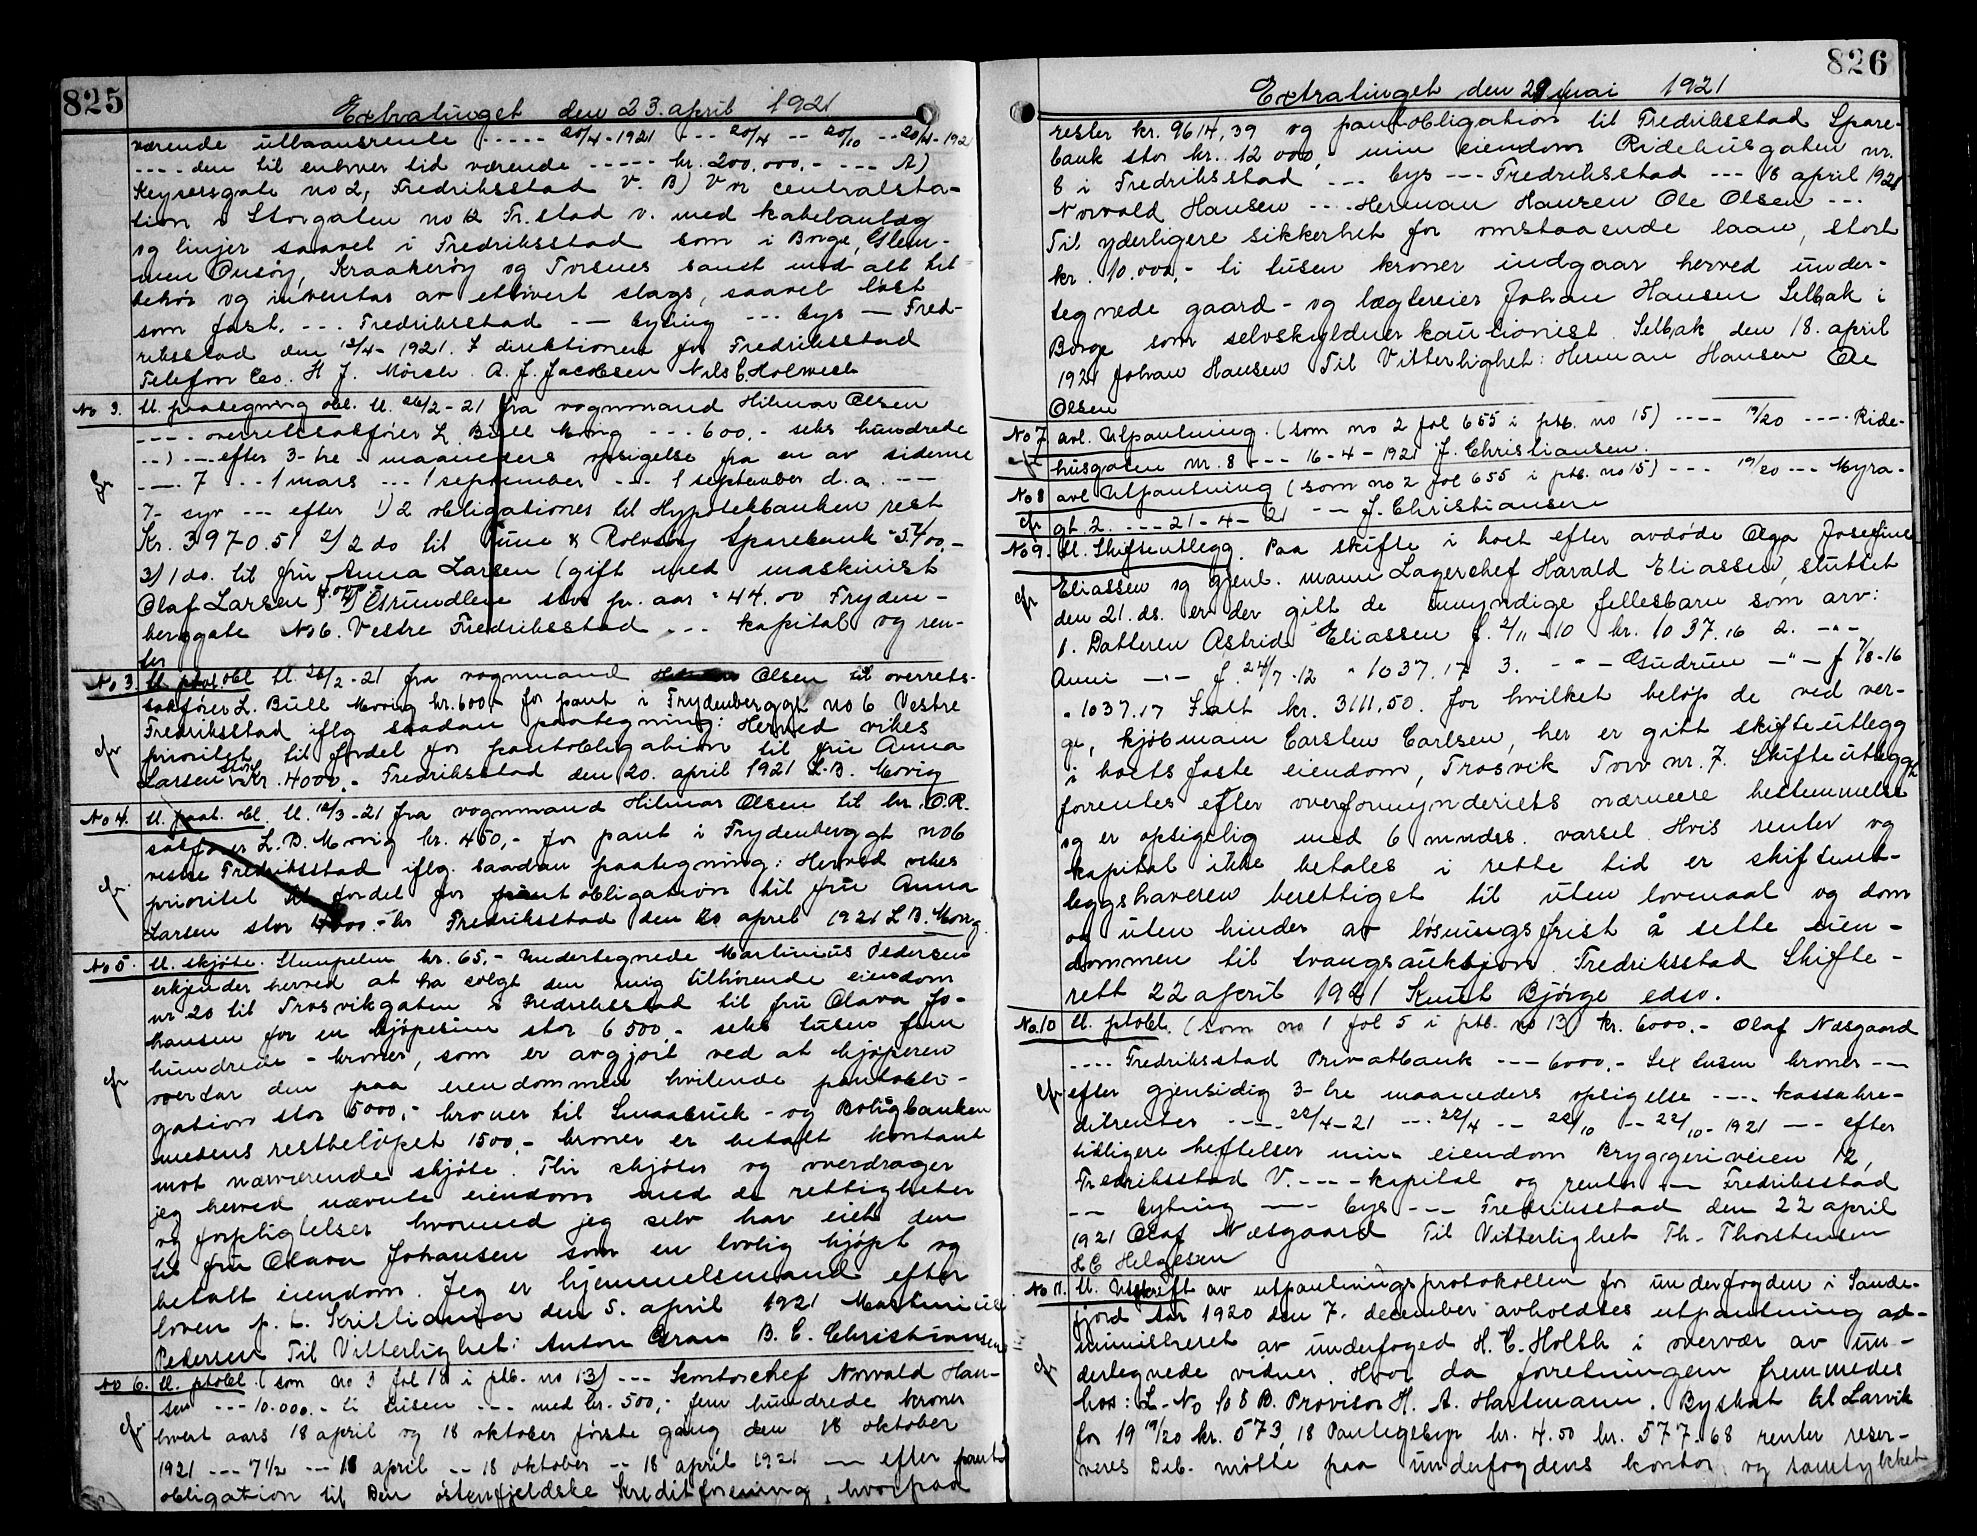 825
Extratinget den 23. april 1921
værende utlaansrente ----- 20/4-1921 --- 20/4 -- 20/10 -- 20/4-192
---- den til enhver tid værende ----- kr. 200,000,- --- A)
Keysersgate no 2, Fredriksstad V. B) Vor centralsta-
tion i Storgaten no 12 Fr.stad v. med kabelanlæg
og linjer saavel i Fredriksstad som i Borge, Glem-
men Onsøy, Kraakerøy og Torsnes samt med alt til
behør og inventar av ethvert slags, saavel løst
som fast. --- Fredriksstad -- byting --- bys -- Fred-
riksstad den 12/4-1921. I direktionen for Fredriksstad
Telefon Co. H J. Mørch. A. J. Jacobsen Nils C. Holwech
No 3. U. paategning obl. U. 26/2-21 fra vognmand Hilmar Olsen
---- overretssakfører L. Bull Moving --- 600.- seks hundrede
--) -- efter 3-tre - maaneders opsigelse fra en av siderne
--- 7 -- 1 mars --- 1 september --- 1 september d.a. ---
7- syv --- efter 1) 2 obligationer til Hypotekbanken rest
Kr. 3970.51 2) 2 do til Tune & Rolvsøy Sparebank 5400.-
3) 1 do. til fru Anna Larsen (gift med maskinist
Olaf Larsen) 4000 4) Grundleie stor pr. aar " 44.00 Fryden-
bergate No 6. Vestre Fredriksstad --- kapital og ren-
ter
No 3. U. paat. obl U. 26/2-21 fra vognmand Olsen til overrets-
sakfører L. Bull Moving kr. 600.- for pant i Frydenberggt no 6 Vestre
Fredriksstad iflg saadan paategning: Herved vikes
prioritet til fordel for pantobligation til fru Anna
Larsen stor Kr. 4000.- Fredriksstad den 20. april 1921 L.B. Moving
No 4. U. paat. obl. U. 12/3-21 fra vognmand Hilmar Olsen til hr. O.R.
sakfører L. B. Moving kr. 450,- for pant i Frydenberggt no 6
vestre Fredriksstad iflg. saadan paategning: Herved vikes
prioritet til fordel for pantobligation til fru Anna
Larsen stor 4000.- kr Fredriksstad den 20 april 1921 L B. Moving
No 5. U. skjøte. Stempelm kr. 65,- Undertegnede Martinius Pedersen
erkjender herved at ha solgt den mig tilhørende eiendom
nr 20 til Trosvikgaten i Fredriksstad til fru Olava Jo-
hansen for en kjøpesum stor 6500,- seks tusen fem
hundrede - kroner, som er avgjort ved at kjøperen
overtar den paa eiendommen hvilende pantobli-
gation stor 5000,- kroner til Smaabruk- og Boligbanken
medens restbeløpet 1500,- kroner er betalt kontant
mot nærværende skjøte. Thi skjøter og overdrager
jeg herved nævnte eiendom med de rettigheter
og forpligtelser hvormed jeg selv har eiet den
til fru Olava Johansen som en lovlig kjøpt og
betalt eiendom. Jeg er hjemmelsmand efter
loven p. t. Kristiania den 5. april 1921 Martinius
Pedersen Til Vitterlighet: Anton Gran B. C. Christiansen
No 6. U. ptobl (som no 3 fol 18 i ptb. no 13) --- Kontorchef Norvald Han-
sen --- 10.000.- ti tusen --- med kr. 500,- fem hundrede kroner
hvert aars 18 april og 18 oktober første gang den 18 oktober
1921 --- 7 1/2 --- 18 april -- 18 oktober -- 18 april 1921 -- efter pant
obligation til Den østenfjeldske Kreditforening, hvorpaa
826
Extratinget den 29 mai 1921
rester kr. 9614,39 og pantobligation til Fredriksstad Spare-
bank stor kr. 12 000,- min eiendom Ridehusgaten nr.
8 i Fredriksstad --- bys --- Fredriksstad --- 18 april 1921
Norvald Hansen ---- Herman Hansen Ole Olsen ---
Til yderligere sikkerhet for omstaaende laan, stort
kr. 10.000,- ti tusen kroner indgaar herved under-
tegnede gaard- og lægtereier Johan Hansen Selbak i
Borge som selvskyldner kautionist Selbak den 18. april
1921 Johan Hansen Til Vitterlighet: Herman Hansen Ole
Olsen
No 7 avl. Utpantning. (som no 2 fol 655 i ptb. no 15) ---- 19/20 ---- Ride-
husgaten nr. 8 --- 16-4-1921 J. Christiansen.
No 8 avl Utpantning (som no 2 fol 655 i ptb. no 15) --- 19/20 --- Myra-
gt. 2. --- 21-4-21 -- J. Christiansen
No 9. U. Skifteutlegg. Paa skifte i boet efter avdøde Olga Josefine
Eliassen og gjenl. mann Lagerchef Harald Eliassen, sluttet
den 21. ds. er der gitt de umyndige fellesbarn som arv:
1. Datteren Astrid Eliassen f. 2/11-10 kr. 1037.16 2. -"-
Anni -"- f. 24/7-12 " 1037.17 3. -"- Gudrun -"- f 7/8-16
" 1037.17 Ialt kr. 3111.50. for hvilket beløp de ved ver-
ge, kjøbmann Carsten Carlsen, her er gitt skifteutlegg
i boets faste eiendom, Trosvik Torv nr. 7. Skifteutlegget
forrentes efter overformynderiets nærmere bestemmelse
og er opsigelig med 6 mndrs. varsel Hvis renter og
kapital ikke betales i rette tid er skifteut-
leggshaveren berettiget til uten lovmaal og dom
og uten hinder av løsningsfrist å sette eien-
dommen til tvangsauktion. Fredriksstad Skifte-
rett 22 april 1921 Knut Bjørge edso.
No 10 U. ptobl. (som no 1 fol 5 i ptb. no 13) kr. 6000.- Olaf Næsgaard
---- Fredriksstad Privatbank --- 6000,- Sex tusen kroner ---
efter gjensidig 3-tre maaneders opsigelse ---- kassakre-
ditrenter ---- 22/4-21 --- 22/4 -- 22/10 -- 22/10-1921 --- efter
tidligere heftelser min eiendom Bryggeriveien 12,
Fredriksstad V. ---- kapital og renter -- Fredriksstad
-- byting --- bys --- Fredriksstad den 22 april
1921 Olaf Næsgaard Til Vitterlighet Th. Thorstensen
H C Helgesen
No 11. U. Utskrift av utpantningsprotokollen for underfogden i Sande-
fjord Aar 1920 den 7. december avholdtes utpantning ad-
ministreret av underfoged H. C. Holth i overvær av un-
dertegnede vidner. Hvor da forretningen fremmedes
hos: L. No 168 B. Provisor H. A. Hartmann. Byskat til Larvik
for 19 19/20 kr. 573,18 Pantegebyr kr. 4.50 kr. 577.68 renter reser-
veres Deb. møtte paa underfogdens kontor og samtykket